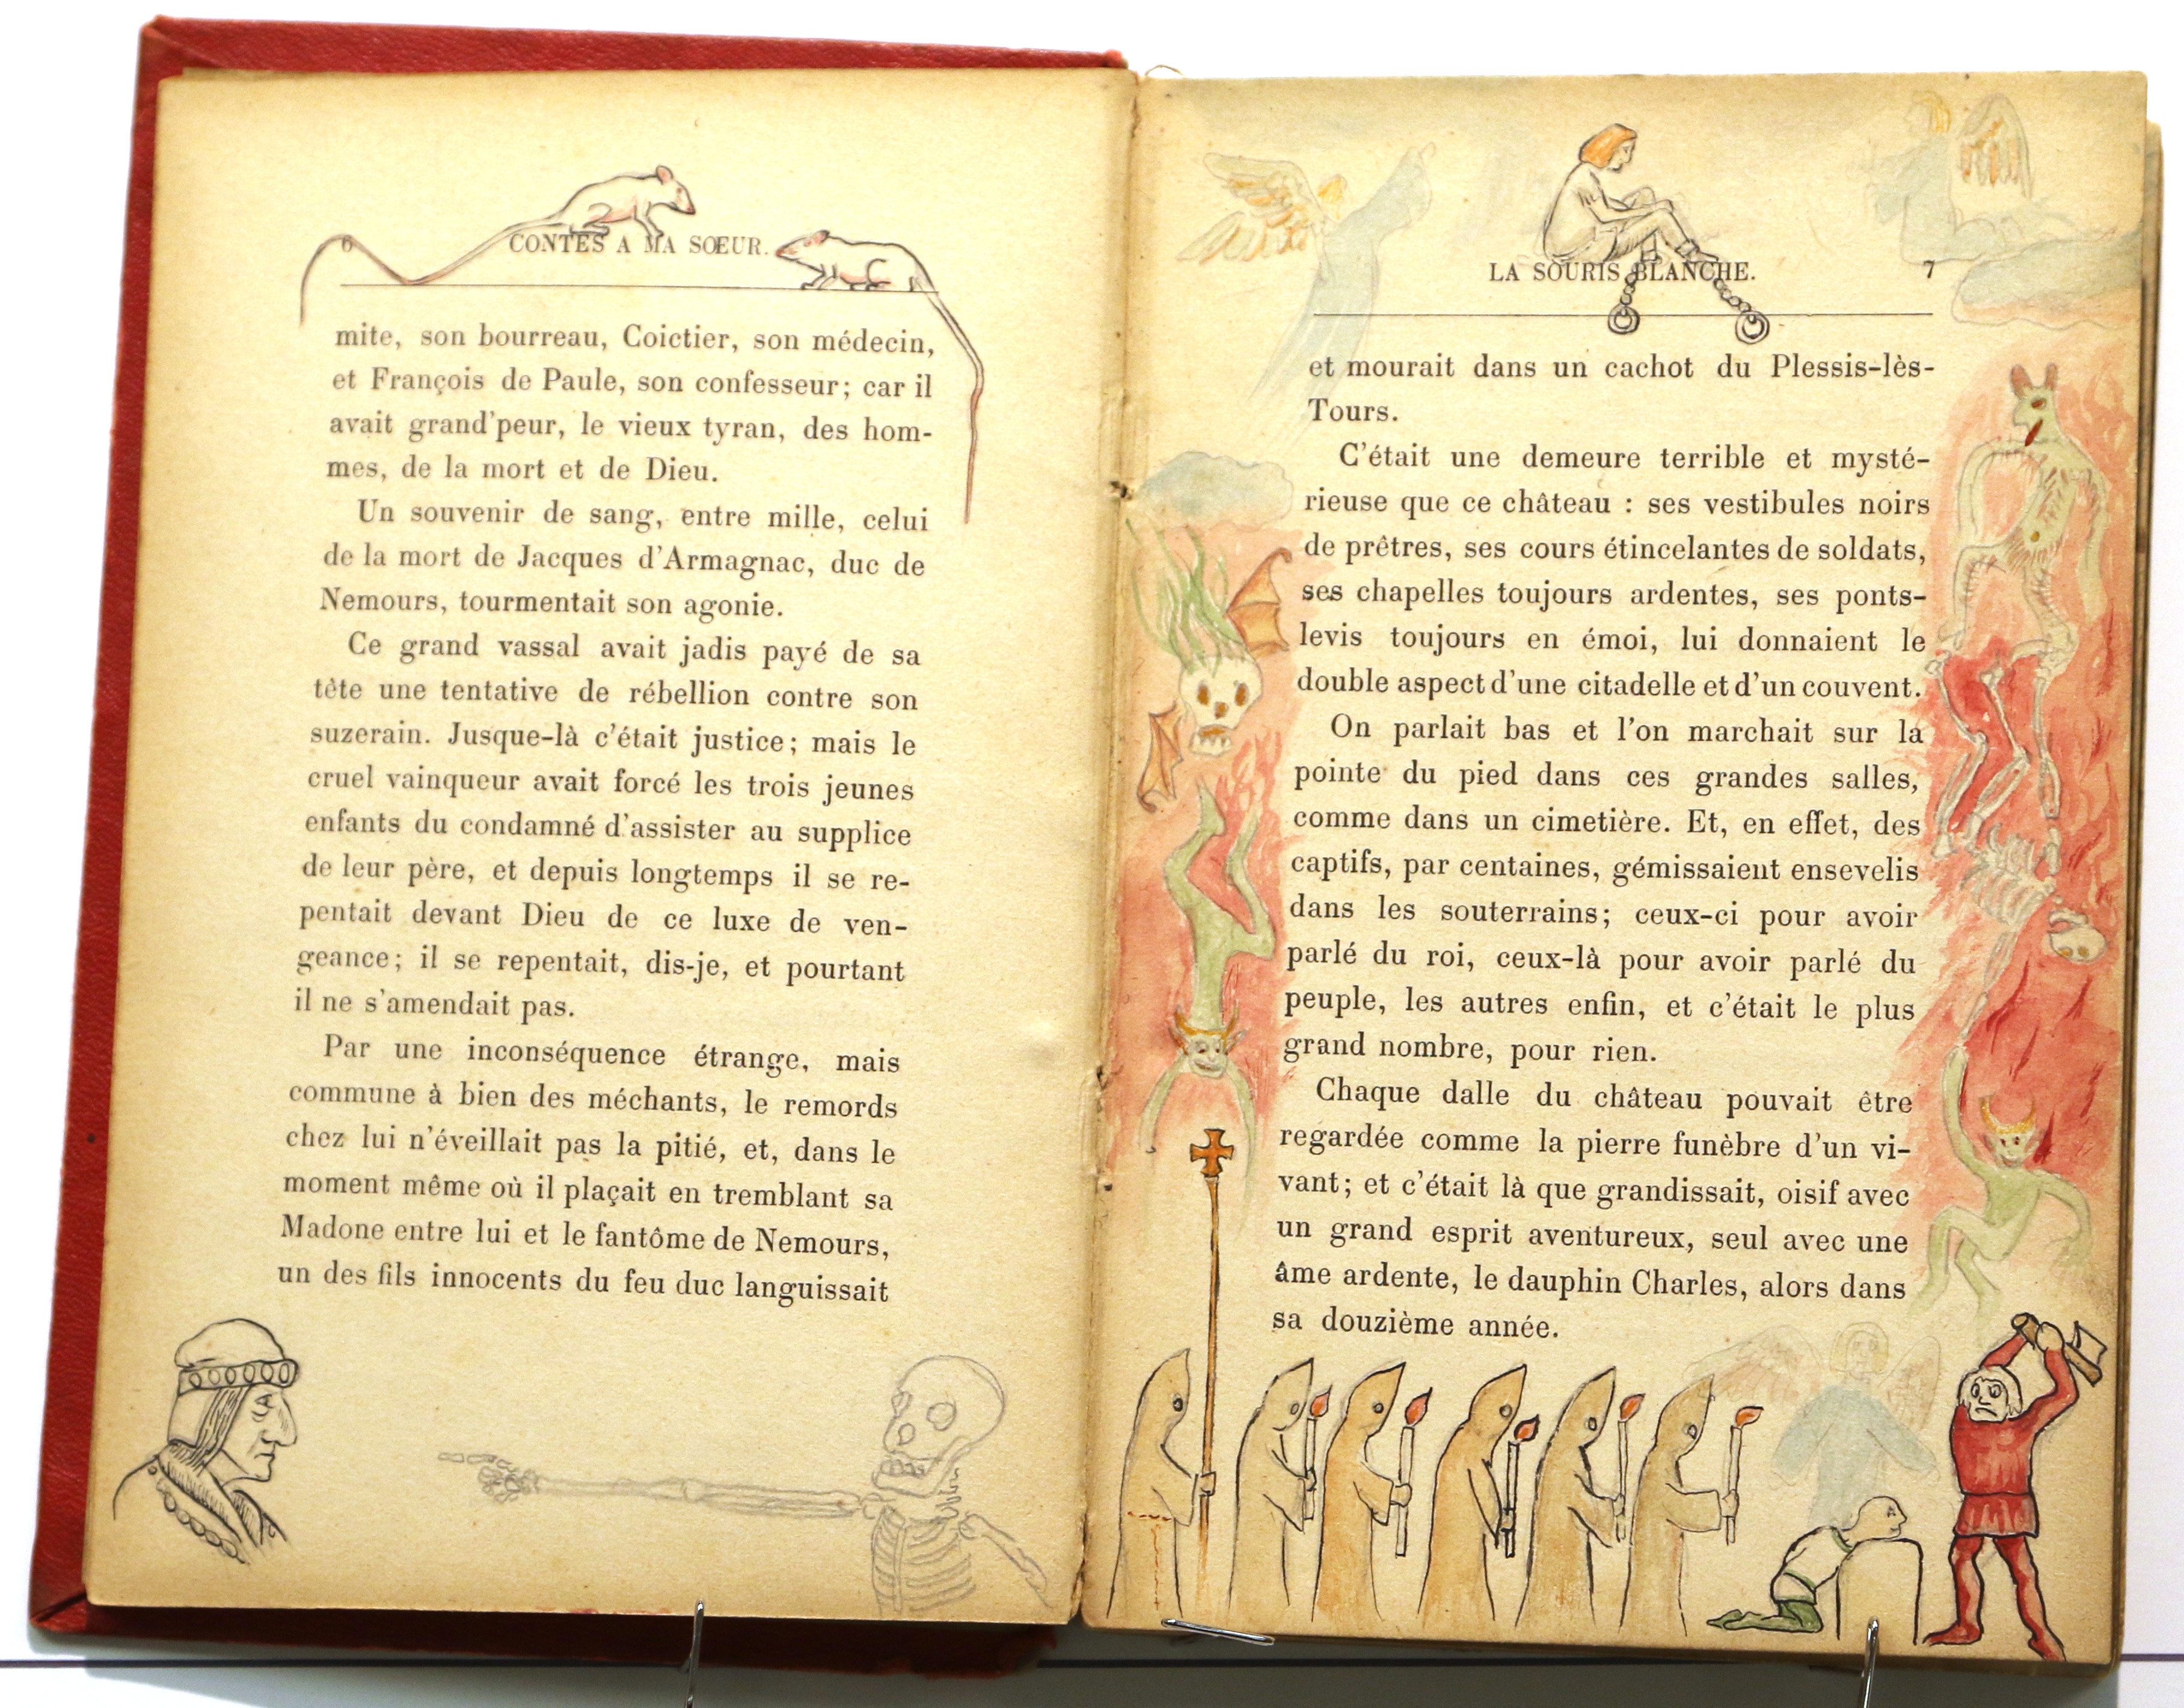 6 CONTES A MA SŒUR.
mite, son bourreau, Coictier, son médecin,
et François de Paule, son confesseur; car il
avait grand'peur, le vieux tyran, des hom-
mes, de la mort et de Dieu.
Un souvenir de sang, entre mille, celui
de la mort de Jacques d'Armagnac, duc de
Nemours, tourmentait son agonie.
Ce grand vassal avait jadis payé de sa
tête une tentative de rébellion contre son
suzerain. Jusque-là c'était justice; mais le
cruel vainqueur avait forcé les trois jeunes
enfants du condamné d'assister au supplice
de leur père, et depuis longtemps il se re-
pentait devant Dieu de ce luxe de ven-
geance; il se repentait, dis-je, et pourtant
il ne s'amendait pas.
Par une inconséquence étrange, mais
commune à bien des méchants, le remords
chez lui n'éveillait pas la pitié, et, dans le
moment même où il plaçait en tremblant sa
Madone entre lui et le fantôme de Nemours,
un des fils innocents du feu duc languissait
LA SOURIS BLANCHE. 7
et mourait dans un cachot du Plessis-lès-
Tours.
C'était une demeure terrible et mysté-
rieuse que ce château : ses vestibules noirs
de prêtres, ses cours étincelantes de soldats,
ses chapelles toujours ardentes, ses ponts-
levis toujours en émoi, lui donnaient le
double aspect d'une citadelle et d'un couvent.
On parlait bas et l'on marchait sur la
pointe du pied dans ces grandes salles,
comme dans un cimetière. Et, en effet, des
captifs, par centaines, gémissaient ensevelis
dans les souterrains; ceux-ci pour avoir
parlé du roi, ceux-là pour avoir parlé du
peuple, les autres enfin, et c'était le plus
grand nombre, pour rien.
Chaque dalle du château pouvait être
regardée comme la pierre funèbre d'un vi-
vant; et c'était là que grandissait, oisif avec
un grand esprit aventureux, seul avec une
âme ardente, le dauphin Charles, alors dans
sa douzième année.